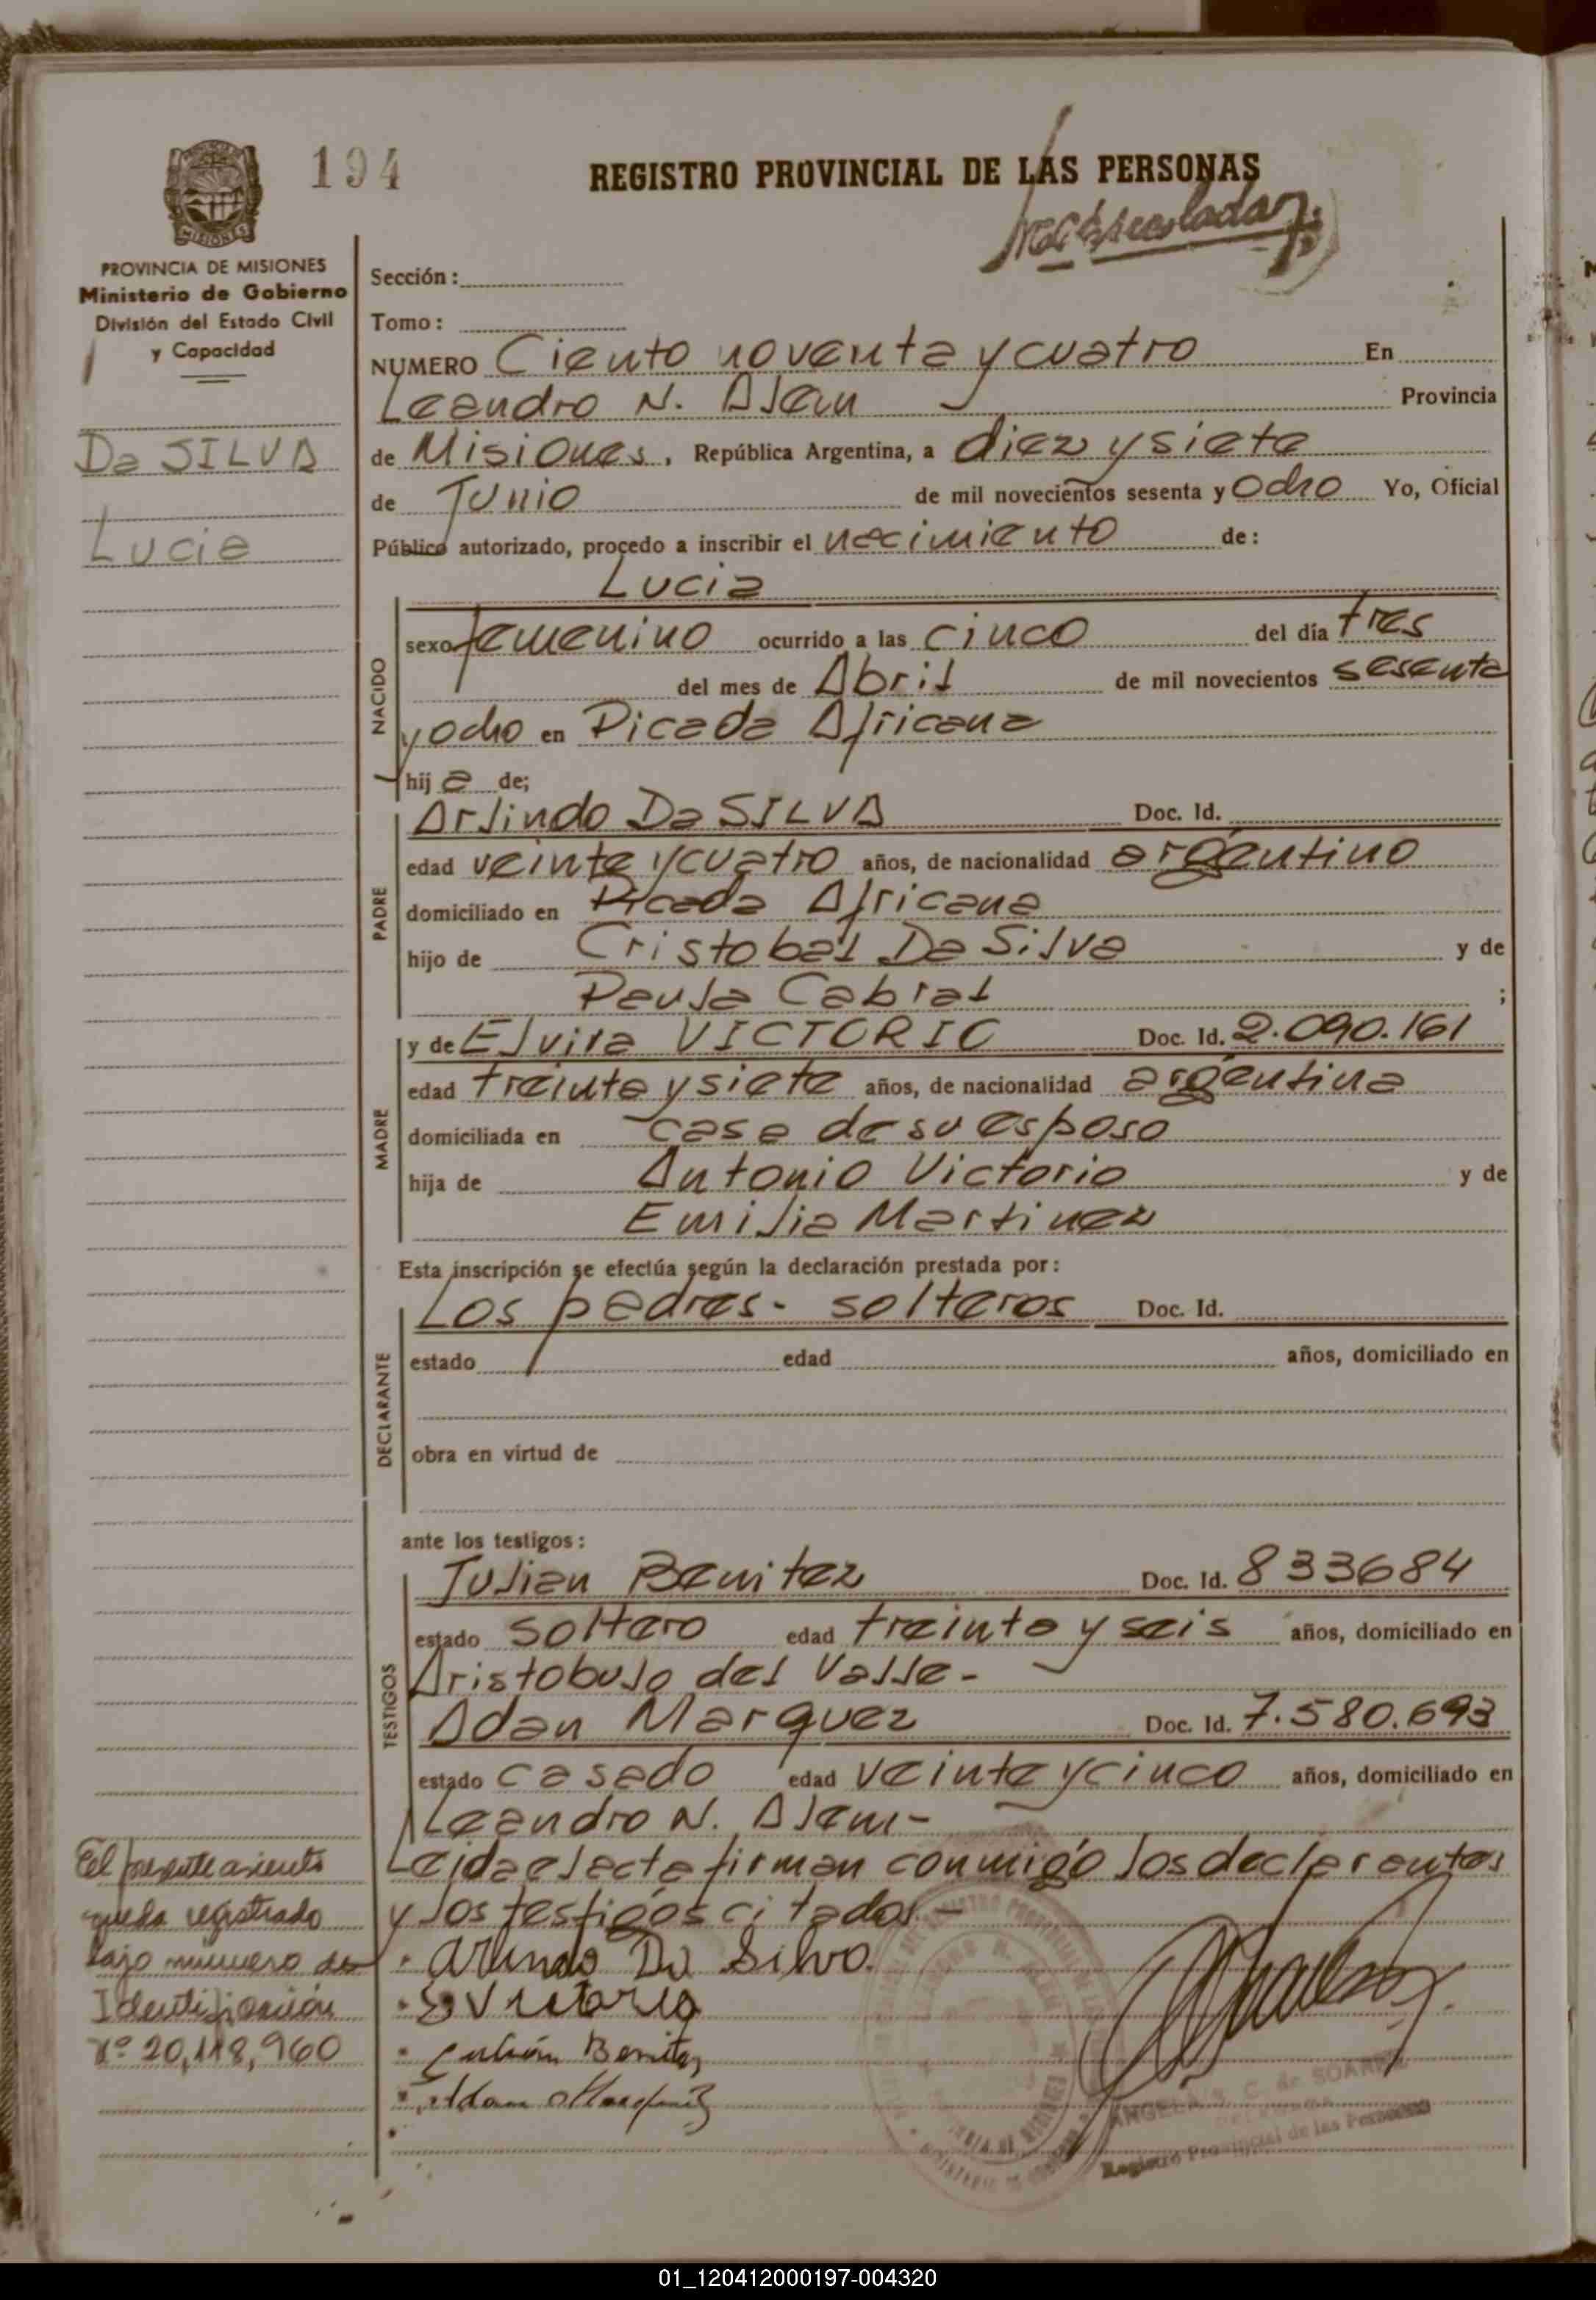 194
REGISTRO PROVINCIAL DE LAS PERSONAS
MISIONES
PROVINCIA DE MISIONES
Ministerio de Gobierno
División del Estado Civil
y Capacidad
Da SILVA
Lucia
Sección:
Tomo:
NUMERO Ciento noventa y cuatro En
Leandro N. Alem Provincia
de Misiones, República Argentina, a diez y siete
de Junio de mil novecientos sesenta y ocho Yo, Oficial
Público autorizado, procedo a inscribir el nacimiento de:
Lucia
NACIDO
sexo femenino ocurrido a las cinco del día tres
del mes de Abril de mil novecientos sesenta
y ocho en Picada Africana
hija de;
PADRE
Arlindo Da SILVA Doc. Id.
edad veinte y cuatro años, de nacionalidad argentino
domiciliado en Picada Africana
hijo de Cristobal Da Silva y de
Paula Cabral ;
MADRE
y de Elvira VICTORIO Doc. Id. 2.090.161
edad treinta y siete años, de nacionalidad argentina
domiciliada en casa de su esposo
hija de Antonio Victorio y de
Emilia Martinez
Esta inscripción se efectúa según la declaración prestada por:
DECLARANTE
Los padres - solteros Doc. Id.
estado edad años, domiciliado en
obra en virtud de
ante los testigos:
TESTIGOS
Julian Benitez Doc. Id. 833684
estado soltero edad treinta y seis años, domiciliado en
Aristobulo del Valle -
Adan Marquez Doc. Id. 7.580.693
estado casado edad veinte y cinco años, domiciliado en
Leandro N. Alem -
Leida el acta firman conmigo los declarantes
y los testigos citados. -
Arlindo Da Silva.
E. Victorio
Julián Benitez
Adan Marquez
El presente asiento
queda registrado
bajo número de
Identificación
Nº 20,118,960
ANGELA C. de SOAREZ
Registro Provincial de las Personas
01_120412000197-004320